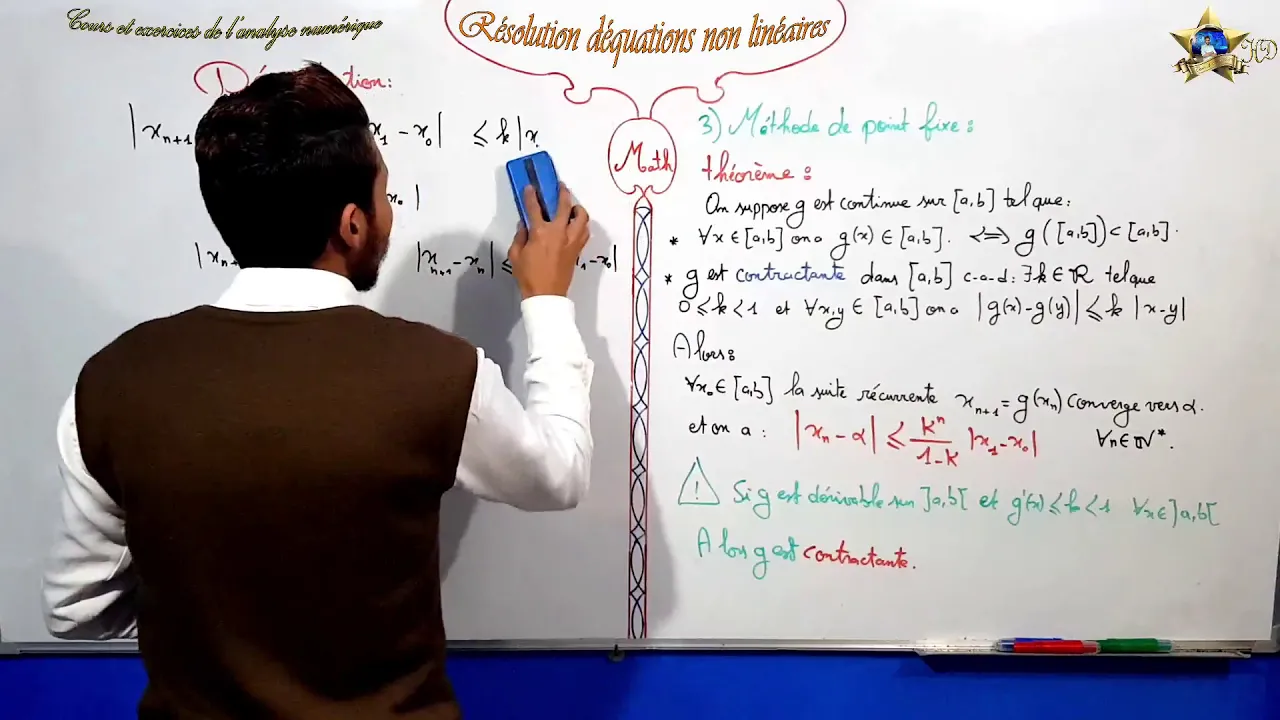 Cours et exercices de l'analyse numérique
Résolution déquations non linéaires
HD
Math
tion:
|x_{n+1} x_1 - x_0| ≤ k |x
x_0|
|x_{n+1} |x_{n+1} - x_n| ≤ x_1 - x_0|
3) Méthode de point fixe :
théorème :
On suppose g est continue sur [a,b] tel que :
* ∀x ∈ [a,b] on a g(x) ∈ [a,b]. <=> g([a,b]) ⊂ [a,b].
* g est contractante dans [a,b] c-a-d : ∃ k ∈ ℝ tel que
0 ≤ k < 1 et ∀x,y ∈ [a,b] on a |g(x) - g(y)| ≤ k |x-y|
Alors :
∀x_0 ∈ [a,b] la suite récurrente x_{n+1} = g(x_n) converge vers α.
et on a : |x_n - α| ≤ k^n/(1-k) |x_1 - x_0| ∀n ∈ ℕ*.
! Si g est dérivable sur ]a,b[ et g'(x) ≤ k < 1 ∀x ∈ ]a,b[
Alors g est contractante.